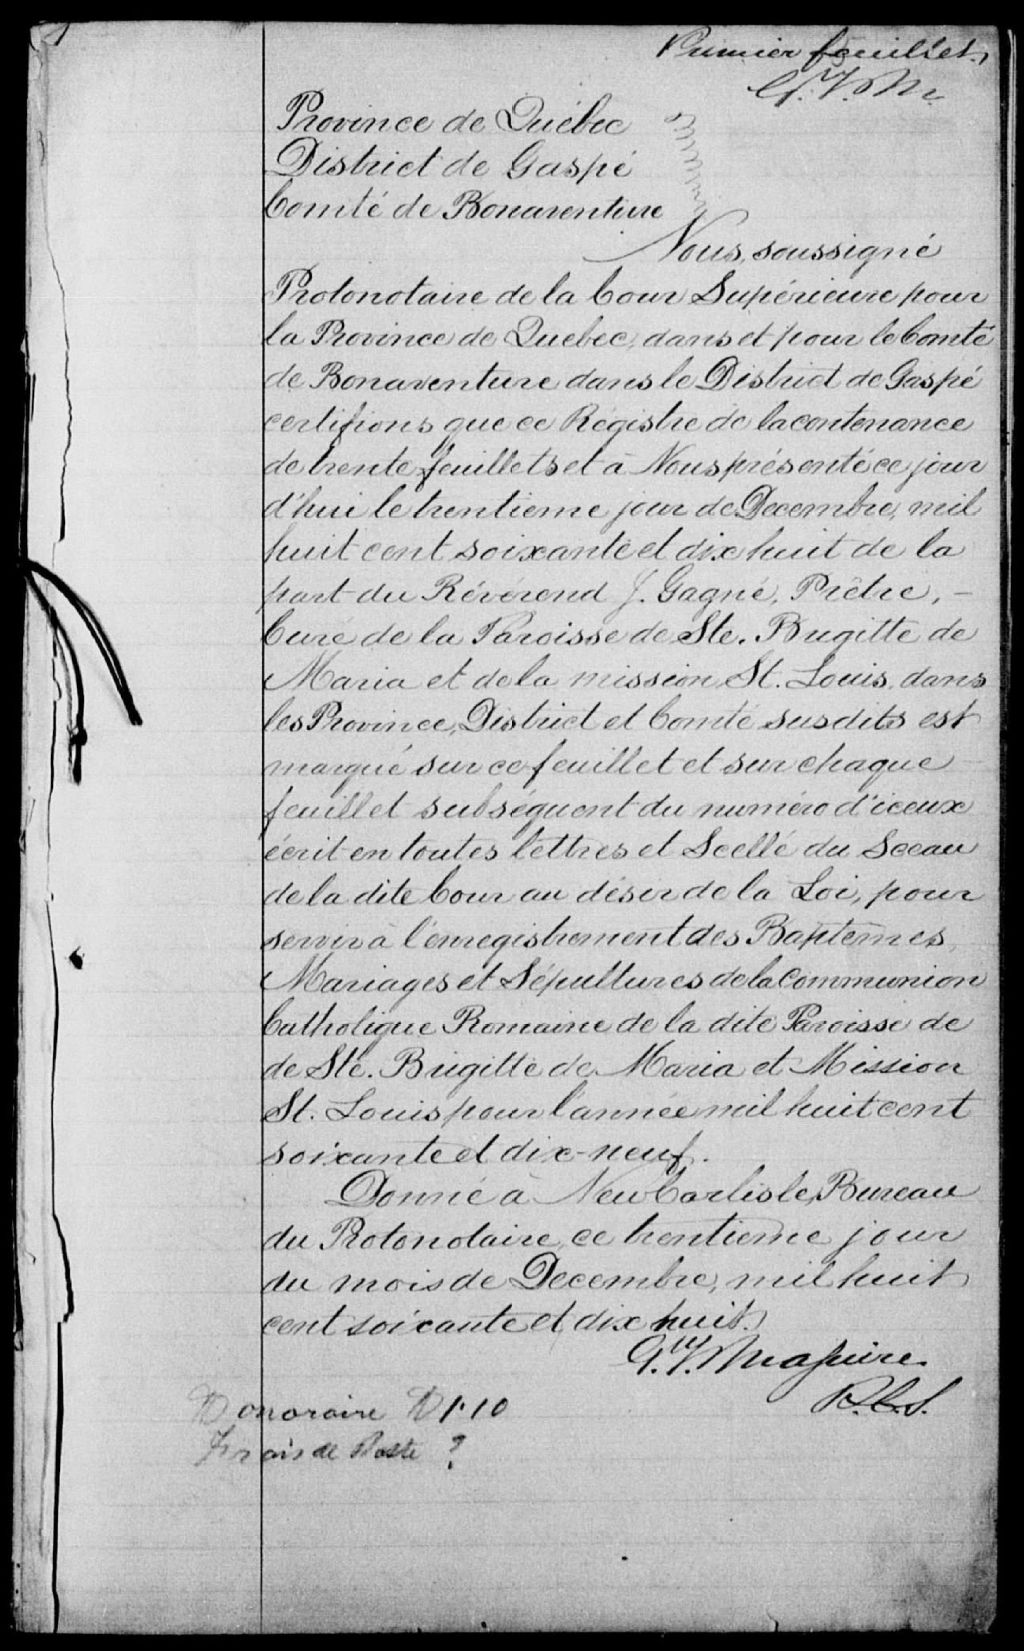 Premier feuillet.
G. V. M.
Province de Québec
District de Gaspé
Comté de Bonaventure
Nous, soussigné
Protonotaire de la Cour Supérieure pour
la Province de Quebec, dans et pour le Comté
de Bonaventure dans le District de Gaspé
certifions que ce Régistre de la contenance
de trente feuillets et à Nous présenté ce jour
d'hui le trentieme jour de Decembre, mil
huit cent soixante et dix huit de la
part du Révérend J. Gagné, Prêtre, -
Curé de la Paroisse de Ste. Brigitte de
Maria et de la mission St. Louis, dans
les Province, District et Comté susdits est
marqué sur ce feuillet et sur chaque
feuillet subséquent du numéro d'iceux
écrit en toutes lettres et Scellé du Sceau
de la dite Cour au désir de la Loi, pour
servir à l'enregistrement des Baptêmes,
Mariages et Sépultures de la Communion
Catholique Romaine de la dite Paroisse de
de Ste. Brigitte de Maria et Mission
St. Louis pour l'année mil huit cent
soixante et dix-neuf.
Donné à New Carlisle, Bureau
du Protonotaire, ce trentieme jour
du mois de Decembre, mil huit
cent soixante et dix huit.
G. V. Maguire.
P.C.S.
Honoraire $1.10
Frais de Poste ?